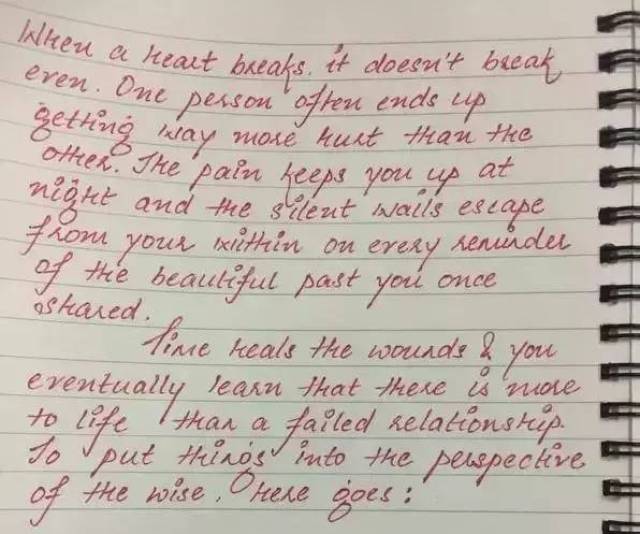 When a heart breaks, it doesn't break
even. One person often ends up
getting way more hurt than the
other. The pain keeps you up at
night and the silent wails escape
from your within on every reminder
of the beautiful past you once
shared.
Time heals the wounds & you
eventually learn that there is more
to life than a failed relationship.
To put things into the perspective
of the wise, here goes: